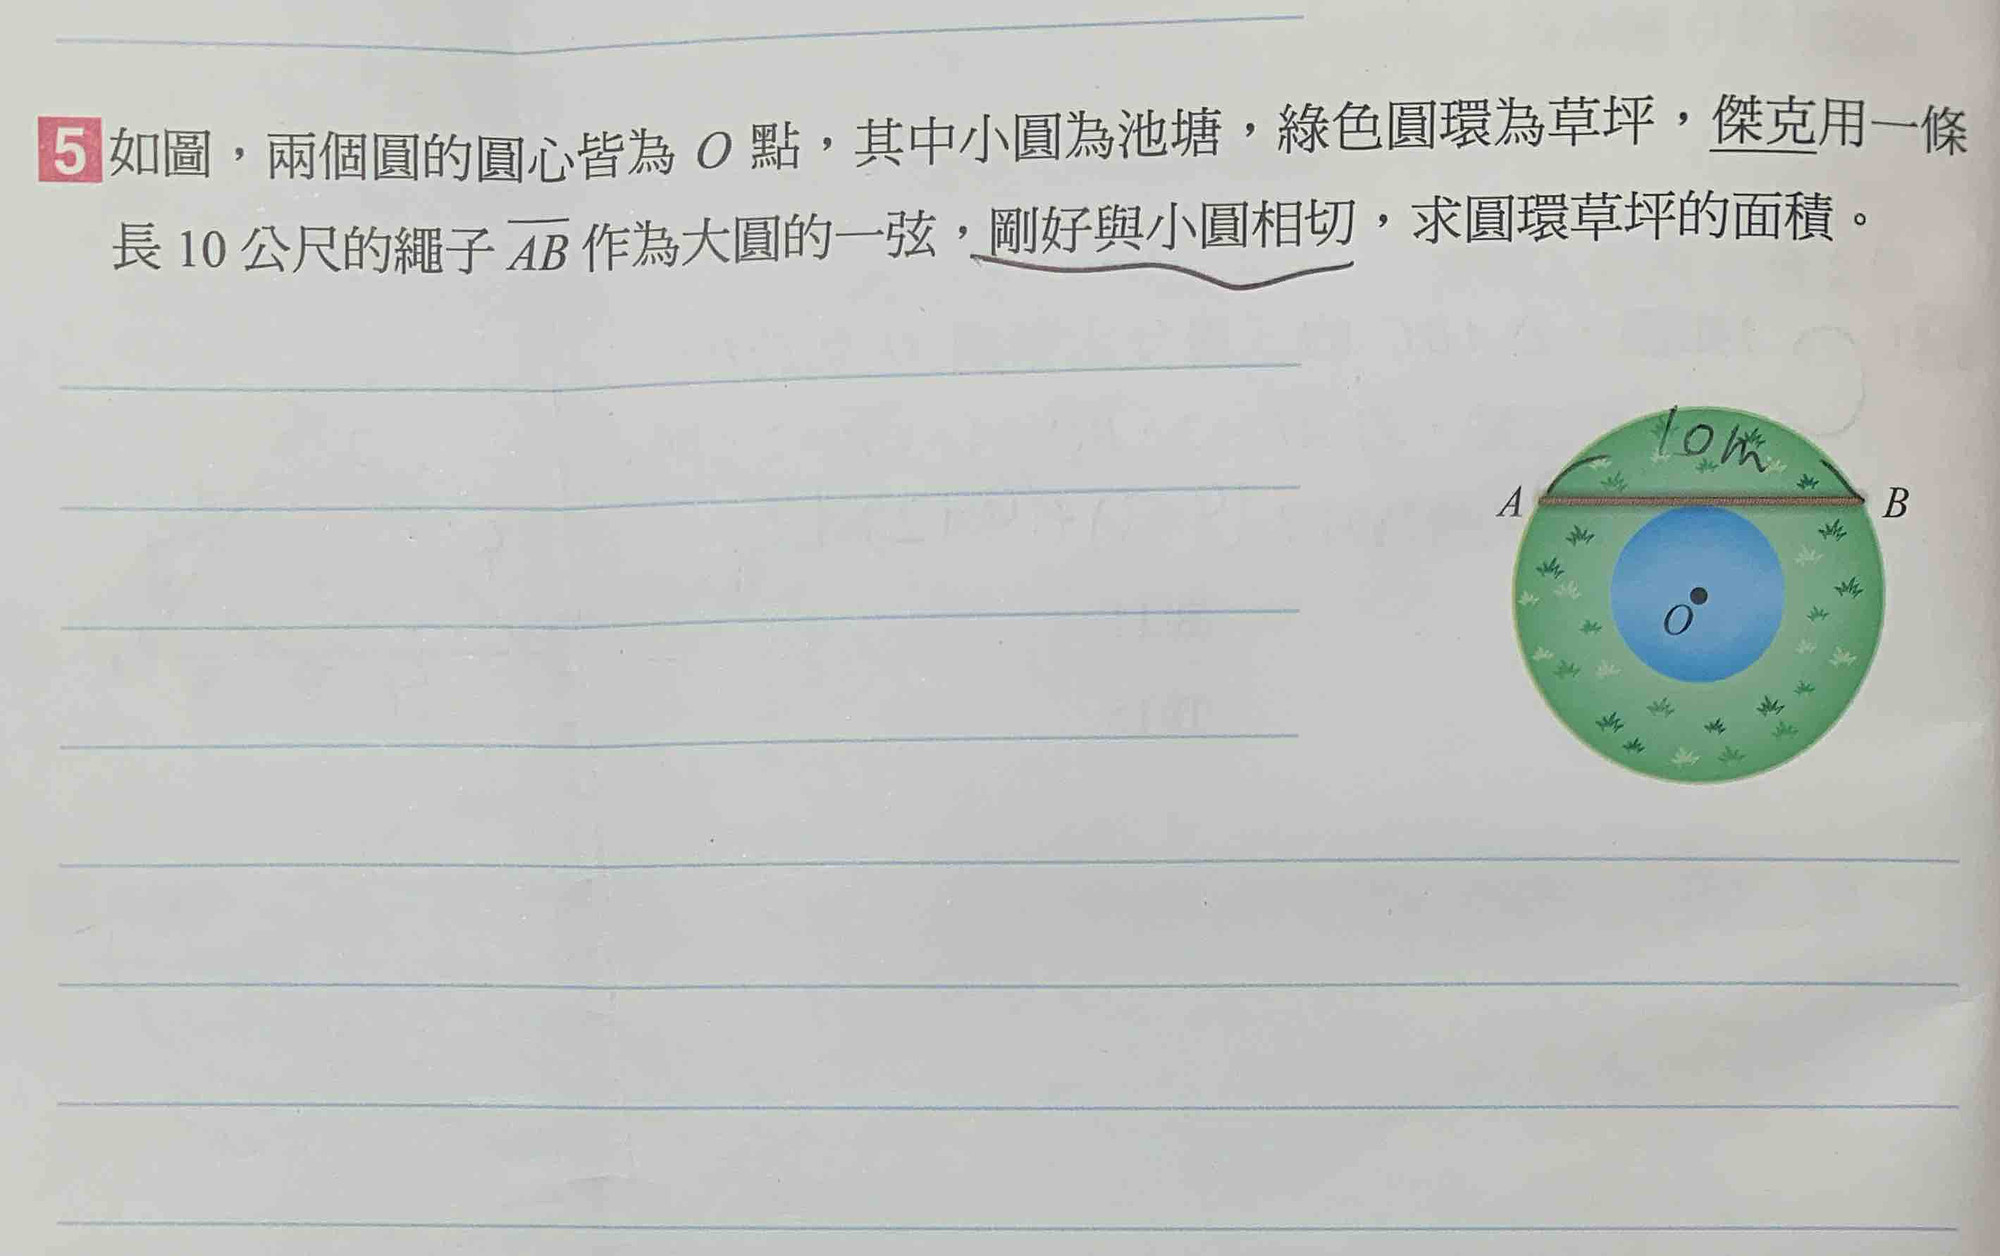 5 如圖，兩個圓的圓心皆為 O 點，其中小圓為池塘，綠色圓環為草坪，傑克用一條
長 10 公尺的繩子 AB 作為大圓的一弦，剛好與小圓相切，求圓環草坪的面積。
10m
A B
O